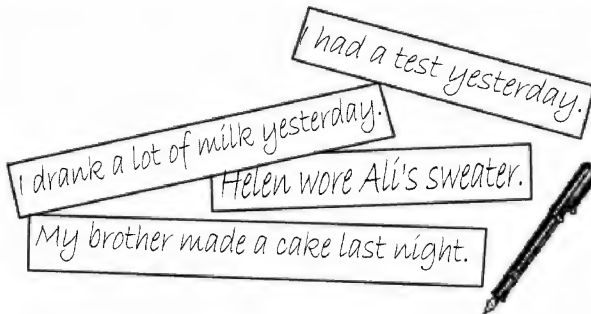 I had a test yesterday.
I drank a lot of milk yesterday.
Helen wore Ali's sweater.
My brother made a cake last night.